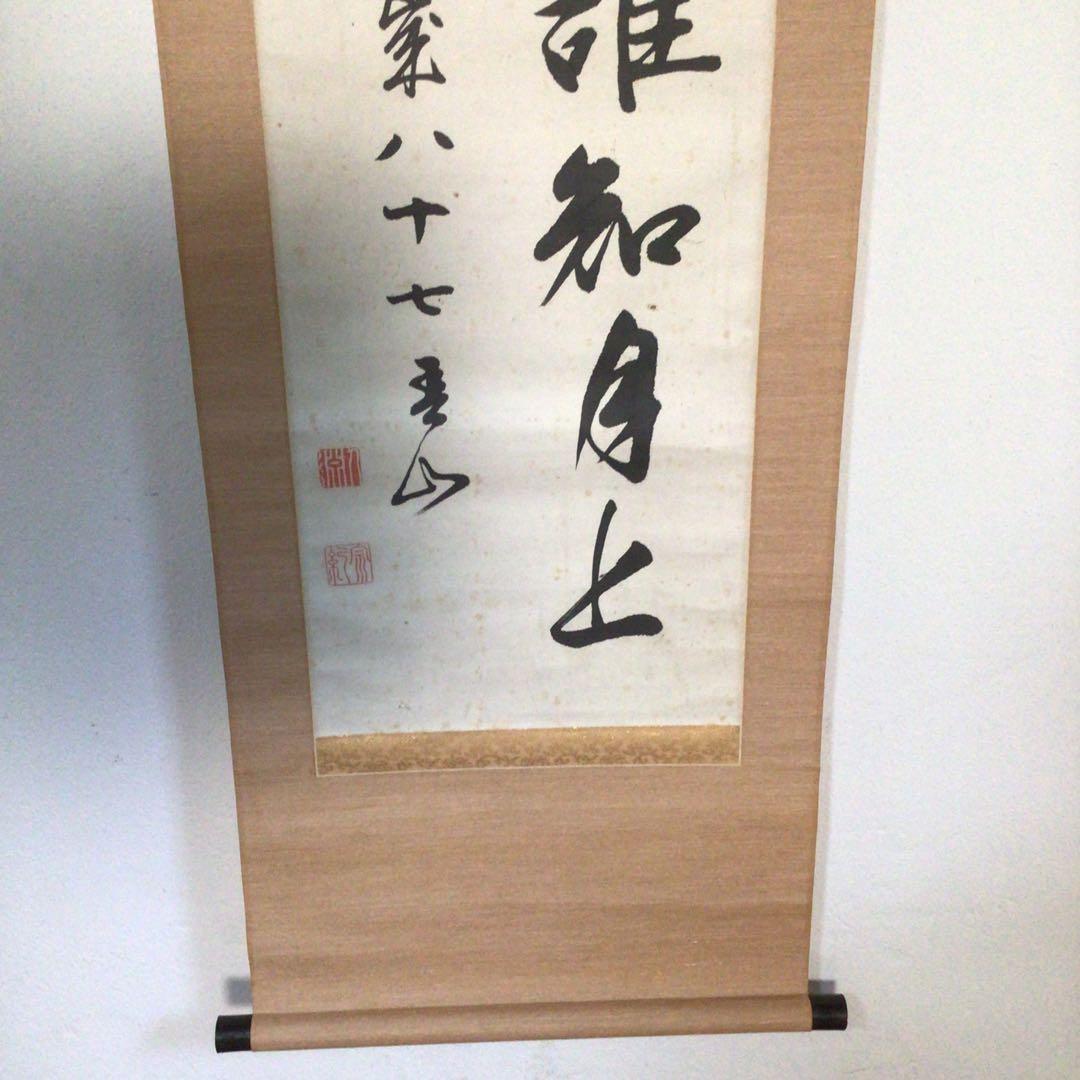 誰知月上
歳八十七吾山